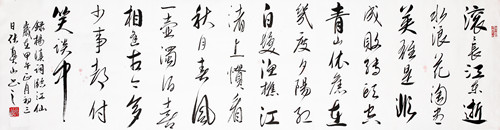 滚滚长江东逝
水浪花淘尽
英雄是非
成败转头空
青山依旧在
几度夕阳红
白发渔樵江
渚上惯看
秋月春风
一壶浊酒喜
相逢古今多
少事都付
笑谈中
录杨慎词临江仙
岁在甲午正月初三
日住良山